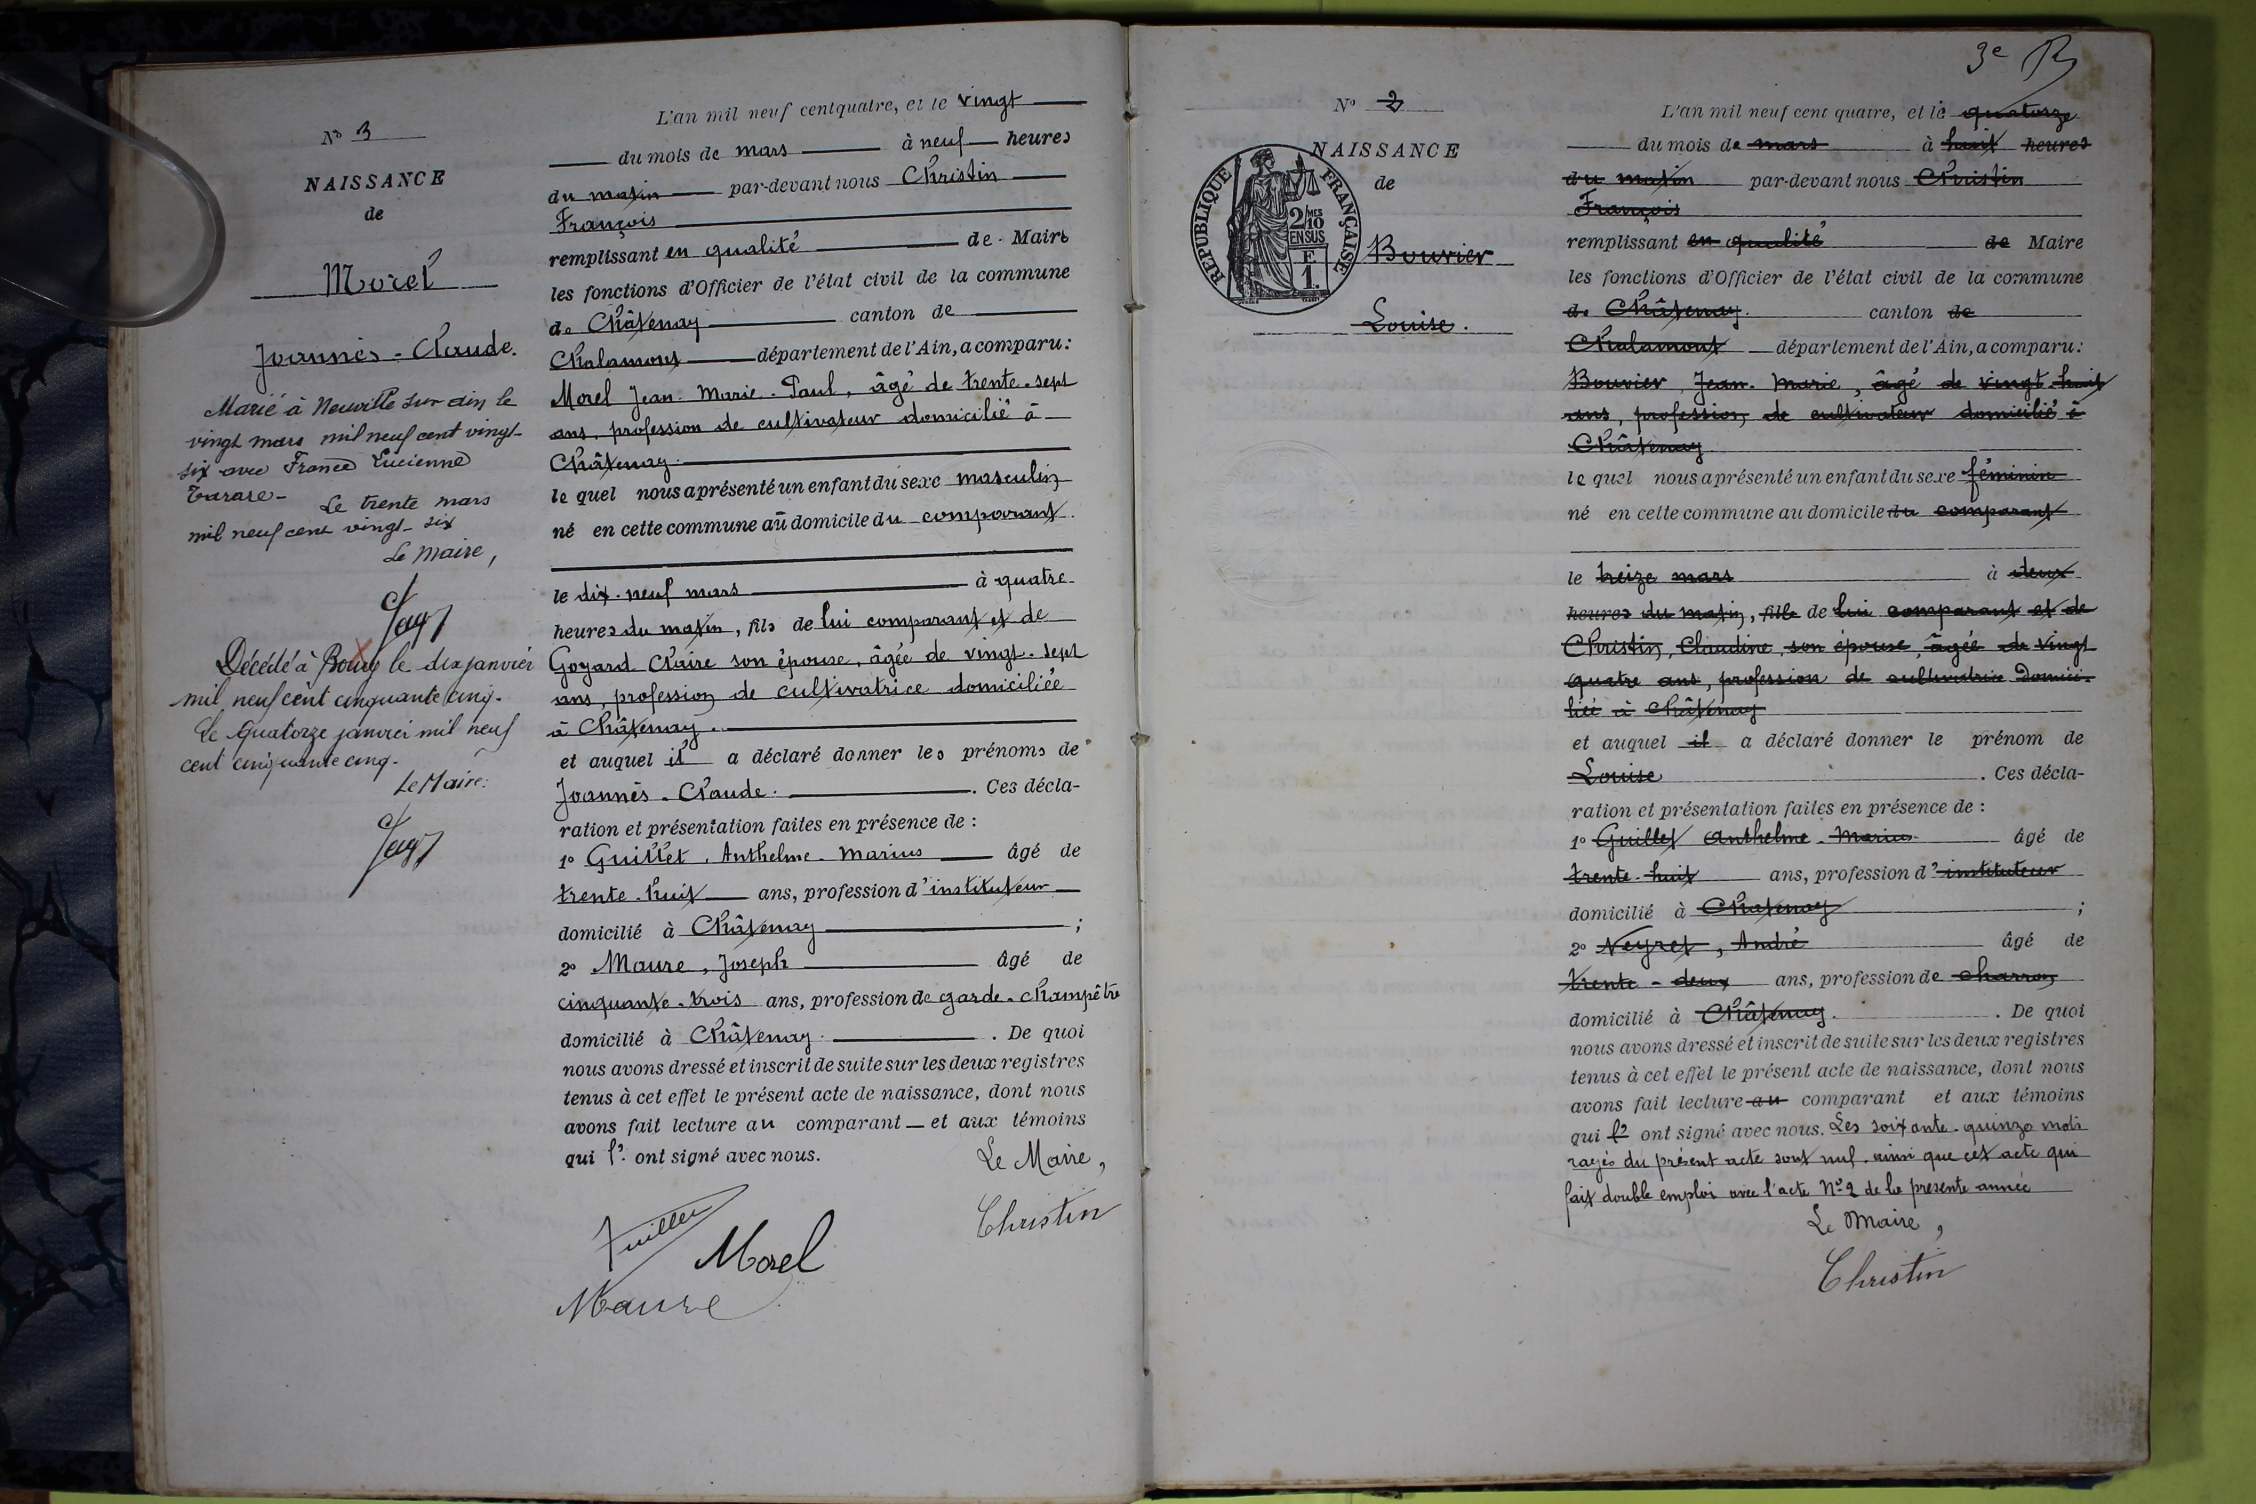 Nº 3
NAISSANCE
de
Morel
Joannès - Claude.
Marié à Neuville sur ain le
vingt mars mil neuf cent vingt-
six avec France Lucienne
Tarare -
Le trente mars
mil neuf cent vingt-six
Le Maire,
Décédé à Bourg le dix janvier
mil neuf cent cinquante cinq.
Le quatorze janvier mil neuf
cent cinquante cinq.
Le Maire:
L'an mil neuf cent quatre, et le vingt
du mois de mars à neuf heures
du matin par-devant nous Christin
François
remplissant en qualité de Maire
les fonctions d'Officier de l'état civil de la commune
de Châtenay canton de
Chalamont département de l'Ain, a comparu:
Morel Jean-Marie-Paul, âgé de trente-sept
ans, profession de cultivateur domicilié à
Châtenay.
le quel nous a présenté un enfant du sexe masculin
né en cette commune au domicile du comparant.
le dix-neuf mars à quatre
heures du matin, fils de lui comparant et de
Goyard Claire son épouse, âgée de vingt-sept
ans, profession de cultivatrice domiciliée
à Châtenay.
et auquel il a déclaré donner les prénoms de
Joannès-Claude. . Ces décla-
ration et présentation faites en présence de :
1º Guillet, Anthelme-Marius âgé de
trente-huit ans, profession d'instituteur
domicilié à Châtenay ;
2º Maure, Joseph âgé de
cinquante-trois ans, profession de garde-champêtre
domicilié à Châtenay. . De quoi
nous avons dressé et inscrit de suite sur les deux registres
tenus à cet effet le présent acte de naissance, dont nous
avons fait lecture au comparant et aux témoins
qui l' ont signé avec nous.
Le Maire,
Christin
Morel
Maure
3e
Nº 3
NAISSANCE
de
RÉPUBLIQUE FRANÇAISE
2/10 MES
EN SUS
F.
1.
Bouvier
Louise.
L'an mil neuf cent quatre, et le quatorze
du mois de mars à huit heures
du matin par-devant nous Christin
François
remplissant en qualité de Maire
les fonctions d'Officier de l'état civil de la commune
de Châtenay. canton de
Chalamont département de l'Ain, a comparu:
Bouvier, Jean-Marie, âgé de vingt-huit
ans, profession de cultivateur domicilié à
Châtenay
le quel nous a présenté un enfant du sexe féminin
né en cette commune au domicile du comparant
le treize mars à deux
heures du matin, fille de lui comparant et de
Christin, Claudine, son épouse, âgée de vingt
quatre ans, profession de cultivatrice domici-
liée à Châtenay
et auquel il a déclaré donner le prénom de
Louise . Ces décla-
ration et présentation faites en présence de :
1º Guillet Anthelme-Marius âgé de
trente-huit ans, profession d'instituteur
domicilié à Châtenay ;
2º Neyret, André âgé de
trente-deux ans, profession de charron
domicilié à Châtenay. . De quoi
nous avons dressé et inscrit de suite sur les deux registres
tenus à cet effet le présent acte de naissance, dont nous
avons fait lecture au comparant et aux témoins
qui l' ont signé avec nous. Les soixante-quinze mots
rayés du présent acte sont nul, ainsi que cet acte qui
fait double emploi avec l'acte Nº 2 de la présente année
Le Maire,
Christin